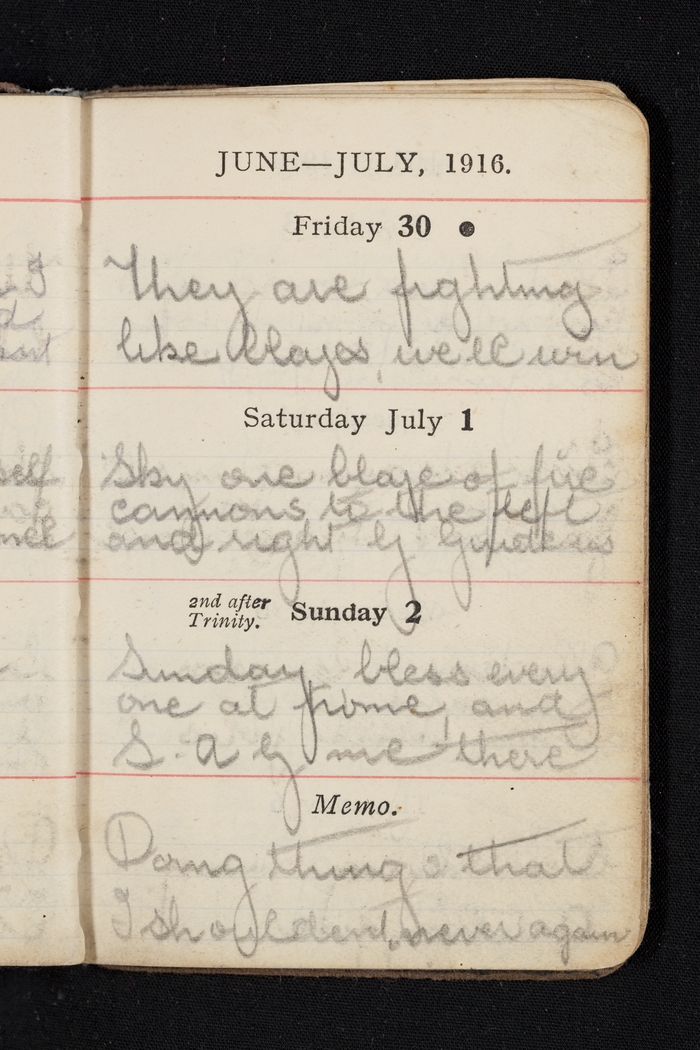 JUNE—JULY, 1916.
Friday 30 ●
They are fighting
like blazes, we'll win
Saturday July 1
Sky one blaze of fire
cannons to the left
and right of
2nd after
Trinity.
Sunday 2
Sunday, bless every
one at home, and
S. A
me there
Memo.
Doing things that
I shouldent, never again